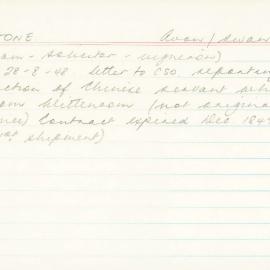 TONE Avon/Swan
am - solicitor - vigneron)
28-8-48. Letter to CSO. reporting
ction of Chinese servant wh
om Wittenoom (not origina
ner) Contract expired Dec 184
shipment)